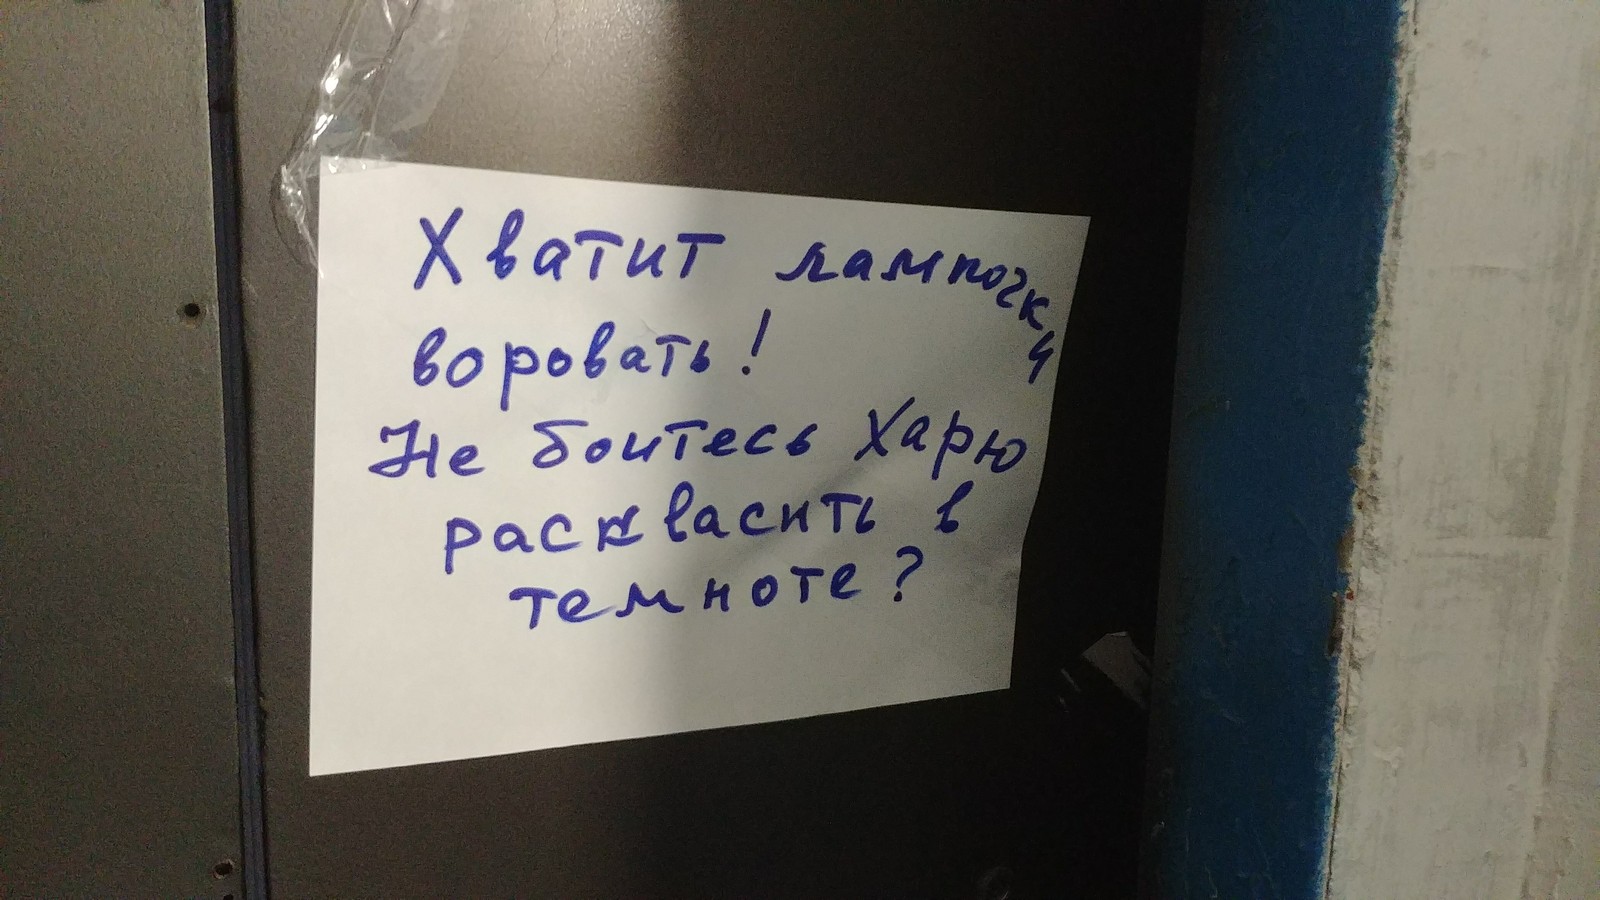 Хватит лампочки
воровать!
Не боитесь харю
расквасить в
темноте?